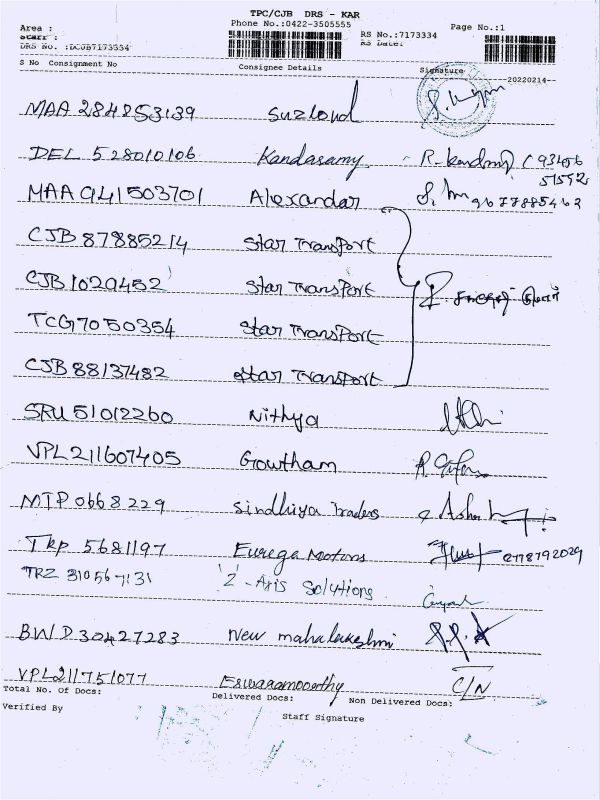 TPC/CJB DRS - KAR
Area : Phone No.:0422-3505555 RS No.:7173334 Page No.:1
Staff : RS Date:
DRS No. :DCJB7173334
S No Consignment No Consignee Details Signature 20220214
MAA 284853139 Suzlond
DEL 528010106 Kandasamy
MAA 941503701 Alexandar 9677885462
CJB 87885214 Star Transport
CJB 1029452 Star Transport
TCG 7050354 Star Transport
CJB 88137482 Star Transport
SRU 51012260 Nithya
VPL 211607405 Gowtham
MTP 0668229 Sindhiya Traders
TRP 5681197 Eurega Motors
TRZ 310567131 'Z'-Axis Solutions
BWD 30427283 New mahalakshmi
VPL 211751077 Eswaramoorthy C/N
Total No. of Docs: Delivered Docs: Non Delivered Docs:
Verified By Staff Signature